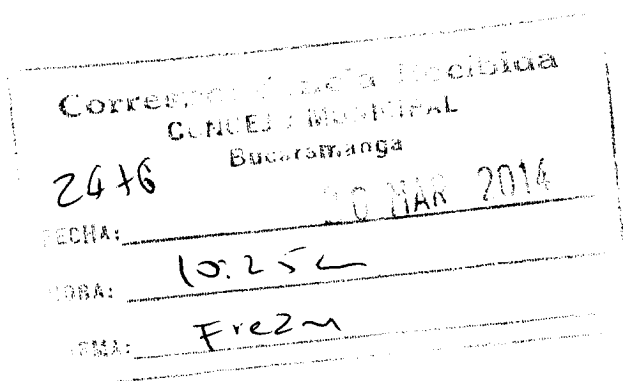 Correspondencia Recibida
CONCEJO MUNICIPAL
Bucaramanga
MAR 2014
FECHA:
HORA: 10:25
FIRMA: